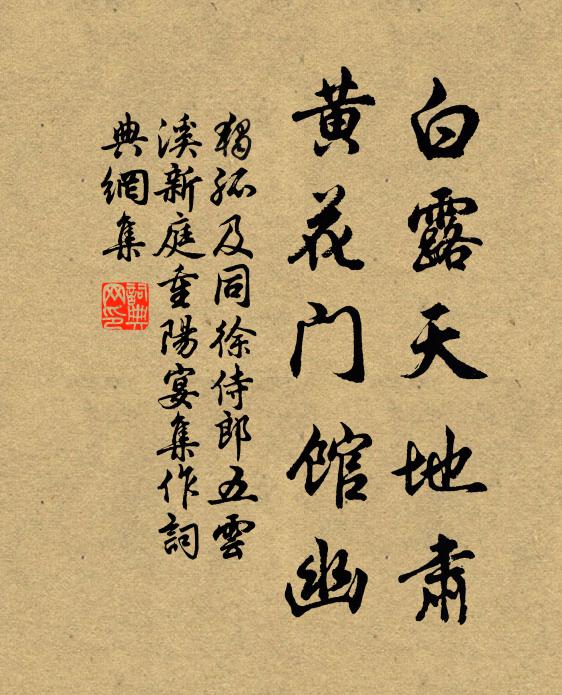 白露天地肅
黄花门馆幽
獨孤及同徐侍郎五雲
溪新庭重陽宴集作詞
典網集
詞典
网印